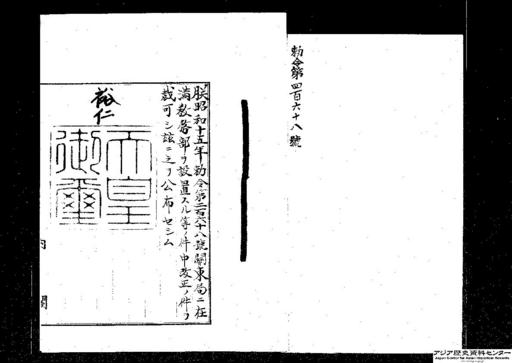 勅令第四百六十八號
朕昭和十五年勅令第二百六十八號關東局ニ在
滿教務部ヲ設置スル等ノ件中改正ノ件ヲ
裁可シ茲ニ之ヲ公布セシム
裕仁
天皇
御璽
内閣
アジア歴史資料センター
Japan Center for Asian Historical Records